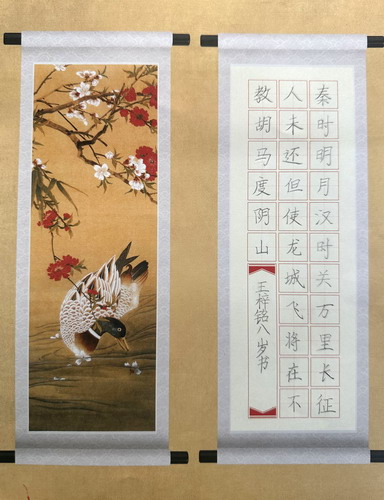 秦时明月汉时关万里长征
人未还但使龙城飞将在不
教胡马度阴山
王梓铭八岁书